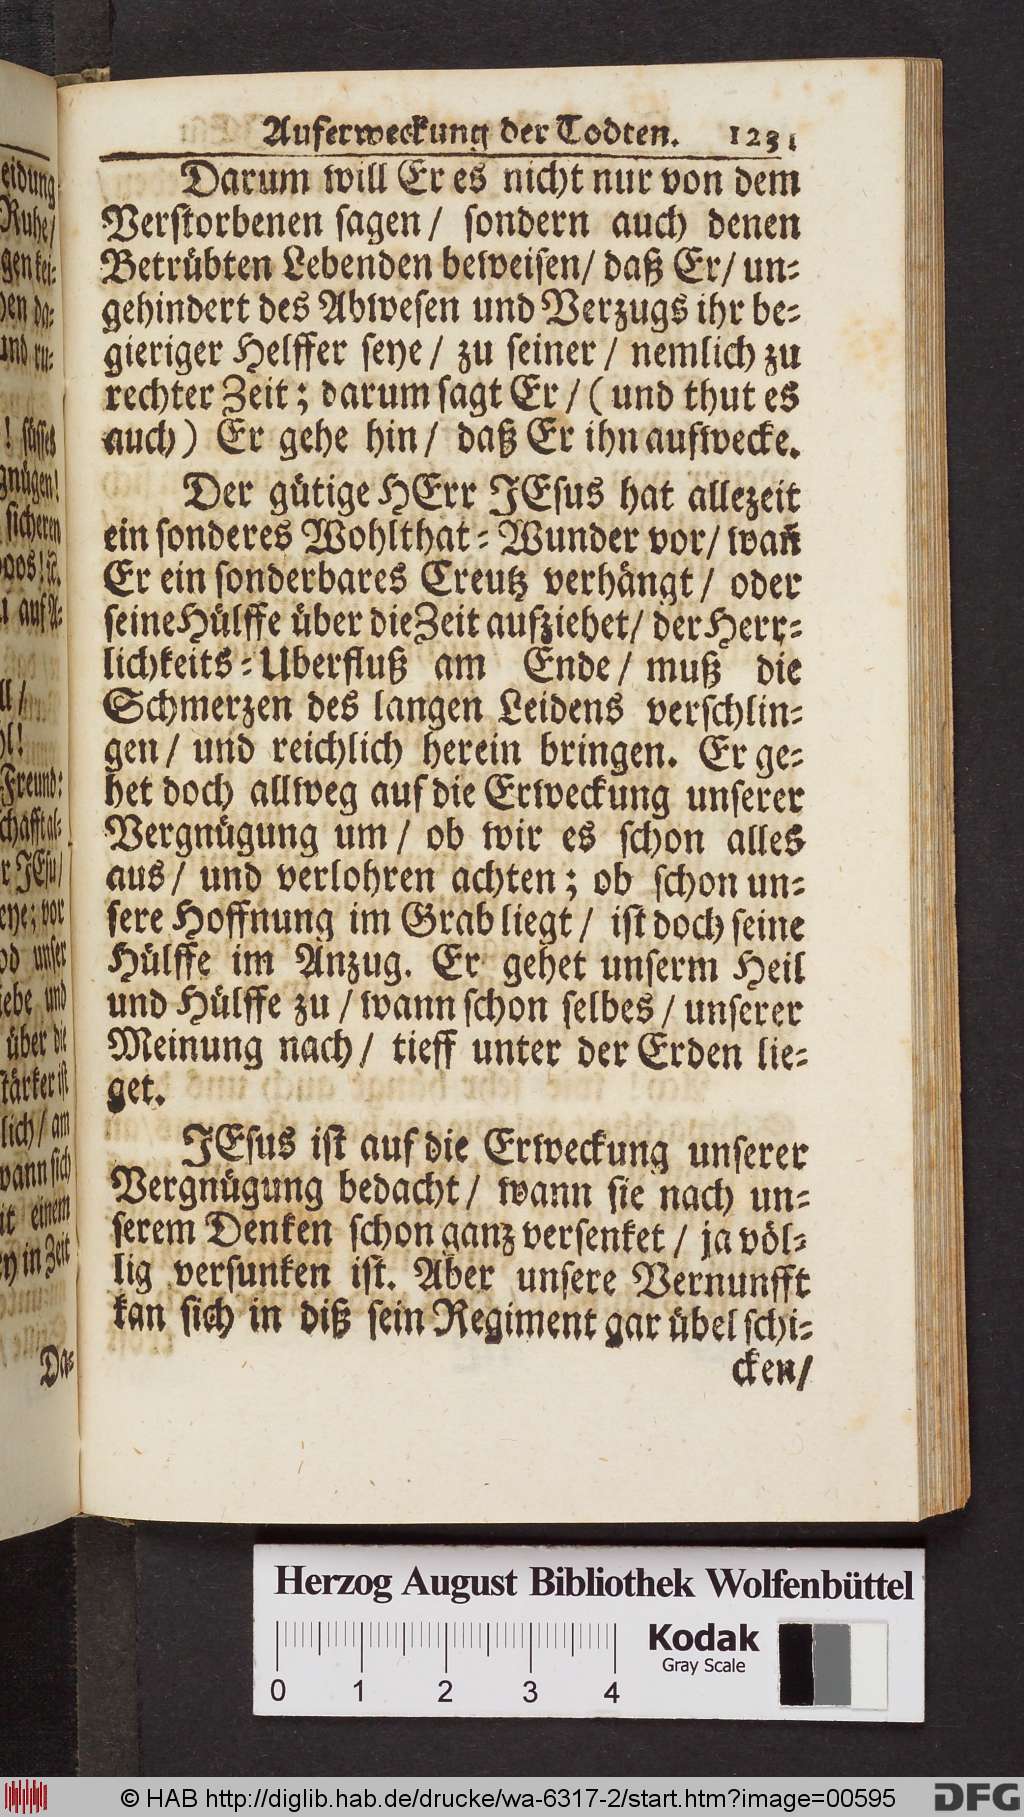 Auferweckung der Todten. 1231
Darum will Er es nicht nur von dem
Verstorbenen sagen / sondern auch denen
Betrübten Lebenden beweisen / daß Er / un-
gehindert des Abwesen und Verzugs ihr be-
gieriger Helffer seye / zu seiner / nemlich zu
rechter Zeit; darum sagt Er / ( und thut es
auch ) Er gehe hin / daß Er ihn aufwecke.
Der gütige HErr JEsus hat allezeit
ein sonderes Wohlthat-Wunder vor / wañ
Er ein sonderbares Creutz verhängt / oder
seine Hülffe über die Zeit aufziehet / der Herr-
lichkeits-Uberfluß am Ende / muß die
Schmerzen des langen Leidens verschlin-
gen / und reichlich herein bringen. Er ge-
het doch allweg auf die Erweckung unserer
Vergnügung um / ob wir es schon alles
aus / und verlohren achten; ob schon un-
sere Hoffnung im Grab liegt / ist doch seine
Hülffe im Anzug. Er gehet unserm Heil
und Hülffe zu / wann schon selbes / unserer
Meinung nach / tieff unter der Erden lie-
get.
JEsus ist auf die Erweckung unserer
Vergnügung bedacht / wann sie nach un-
serem Denken schon ganz versenket / ja völ-
lig versunken ist. Aber unsere Vernunfft
kan sich in diß sein Regiment gar übel schi-
cken /
eidung
Ruhe /
gen kei-
den da-
und ru-
! süsses
gnügen!
sicheren
auf A-
ll /
hl!
Freund-
schafft al-
r JEsu /
seye; vor
od unser
iebe und
über die
stärker ist
lich / am
wann sich
it einem
ey in Zeit
Da-
Herzog August Bibliothek Wolfenbüttel
Kodak
Gray Scale
0 1 2 3 4
© HAB http://diglib.hab.de/drucke/wa-6317-2/start.htm?image=00595
DFG